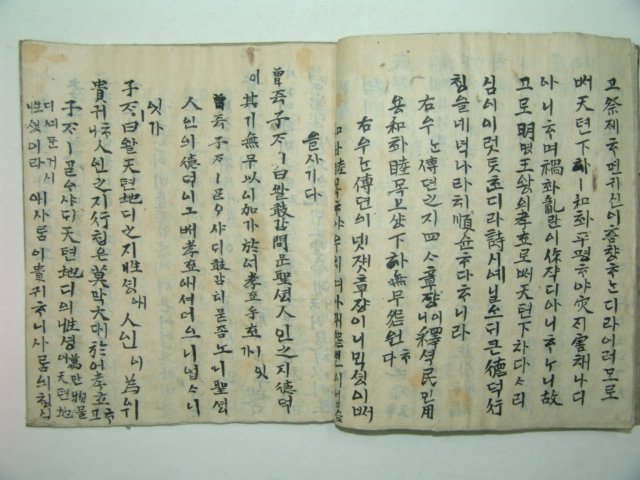 고祭졔ᄒᆞ면귀신이흠향ᄒᆞᄂᆞ디라이러모로
ᄡᅥ天텬下하ㅣ和화平평ᄒᆞ야灾ᄌᆡ害해나디
아니ᄒᆞ며禍화亂란이作쟉디아니ᄒᆞᄂᆞ니故
고로明명王왕의孝효로ᄡᅥ天텬下하다ᄉᆞ리
심이이럿ᄐᆞᆺᄒᆞ디라詩시예닐오ᄃᆡ큰德덕行
ᄒᆡᆼ을네녁나라히順슌ᄒᆞ다ᄒᆞ니라
右우ᄂᆞᆫ傳뎐之지四ᄉᆞ章쟝이釋셕民민用
용和화睦목上샹下하無무怨원ᄒᆞ다
右우ᄂᆞᆫ傳뎐의넷ᄌᆡ章쟝이니ᄇᆡᆨ셩이ᄡᅥ
和화睦목ᄒᆞ야우히며아래怨원이업슴
을사기다
曾증子ᄌᆞㅣ曰왈敢감問문聖셩人인之지德덕
이其기無무以이加가於어孝효乎호ᄒᆞ니잇가
曾증子ᄌᆞㅣᄀᆞᆯᄋᆞ샤ᄃᆡ敢감히묻ᄌᆞᆸ노니聖셩
人인의德덕이ᄡᅥ孝효애셔더으니업ᄉᆞ니
잇가
子ᄌᆞㅣ曰왈天텬地디之지性셩애人인이爲위
貴귀ᄒᆞ니人인之지行ᄒᆡᆼ은莫막大대於어孝효ᄒᆞ고
子ᄌᆞㅣᄀᆞᆯᄋᆞ샤ᄃᆡ天텬地디의性셩이萬만物물이天텬地
디예문거시性셩이라애사ᄅᆞᆷ이貴귀ᄒᆞ니사ᄅᆞᆷ의ᄒᆡᆼ실